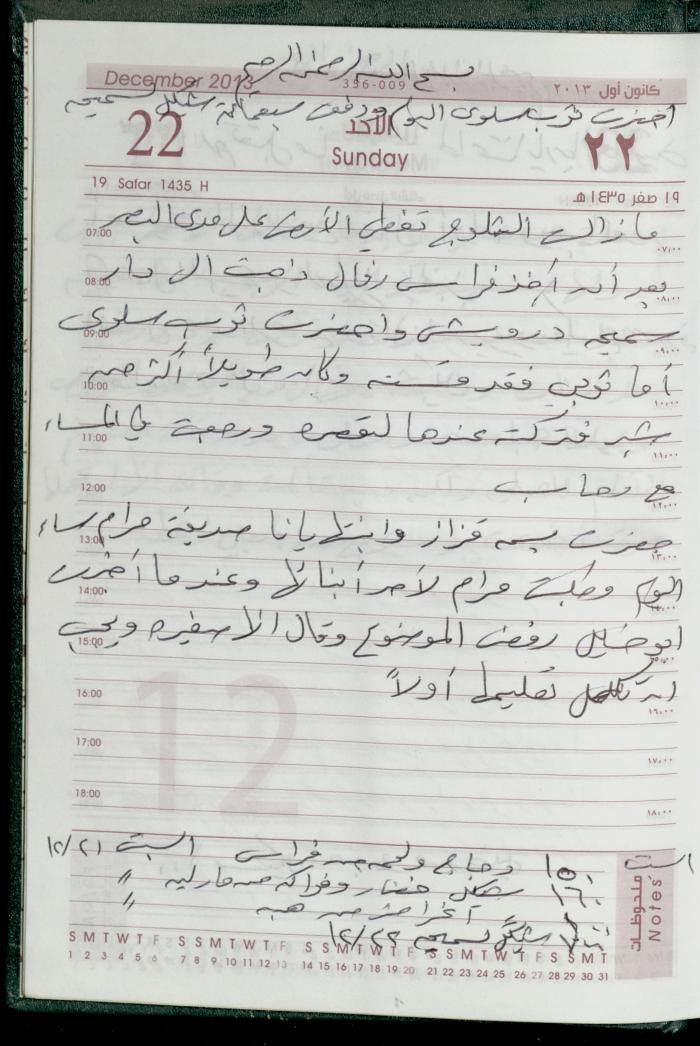 بسم الله الرحمن الرحيم
December 2013 356-009 كانون أول ٢٠١٣
احضرت ثوب سلوى اليوم ودفعت سبعمائة شيكل لسميحه
22 الأحد ٢٢
Sunday
19 Safar 1435 H ١٩ صفر ١٤٣٥ هـ
ما زالت الثلوج تغطي الأرض على مدى البصر
07:00 ٠٧:٠٠
بعد أن أخذ فراس رفال ذهبت الى دار
08:00 ٠٨:٠٠
سميحه درويش واحضرت ثوب سلوى
09:00 ٠٩:٠٠
أما ثوبي فقد قسته وكان طويلاً أكثر من
10:00 ١٠:٠٠
شبر فتركته عندها لتقصره ورجعت في المساء
11:00 ١١:٠٠
مع رحاب
12:00 ١٢:٠٠
حضرت بسمه قزاز وابنتها يانا صديقة مرام مساء
13:00 ١٣:٠٠
اليوم وطلبت مرام لأحد أبنائها وعندما أخبرت
14:00 ١٤:٠٠
ابو خليل رفض الموضوع وقال انها صغيره ويجب
15:00 ١٥:٠٠
ان تكمل تعليمها أولاً
16:00 ١٦:٠٠
12
17:00 ١٧:٠٠
18:00 ١٨:٠٠
١٥٠ دجاج ولحمه من فراس السبت ١٢/٢١
١٦٠ شيكل خضار وفواكه من مارليه "
أغراض من هبه "
٧٠٠ شيكل لسميحه ١٢/٢٢
ملحوظات Notes
S M T W T F S S M T W T F S S M T W T F S S M T W T F S S M T
1 2 3 4 5 6 7 8 9 10 11 12 13 14 15 16 17 18 19 20 21 22 23 24 25 26 27 28 29 30 31